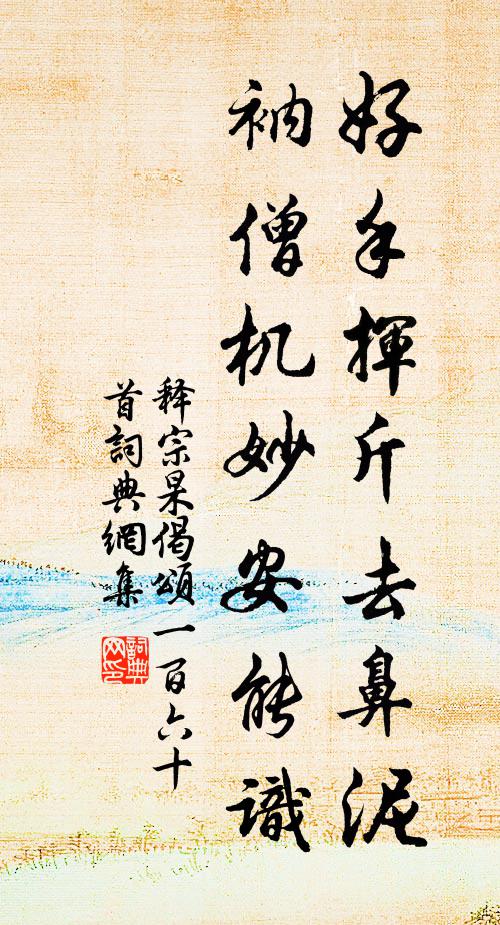 好手揮斤去鼻泥
衲僧机妙安能識
释宗杲偈頌一百六十
首詞典網集
詞典
网印